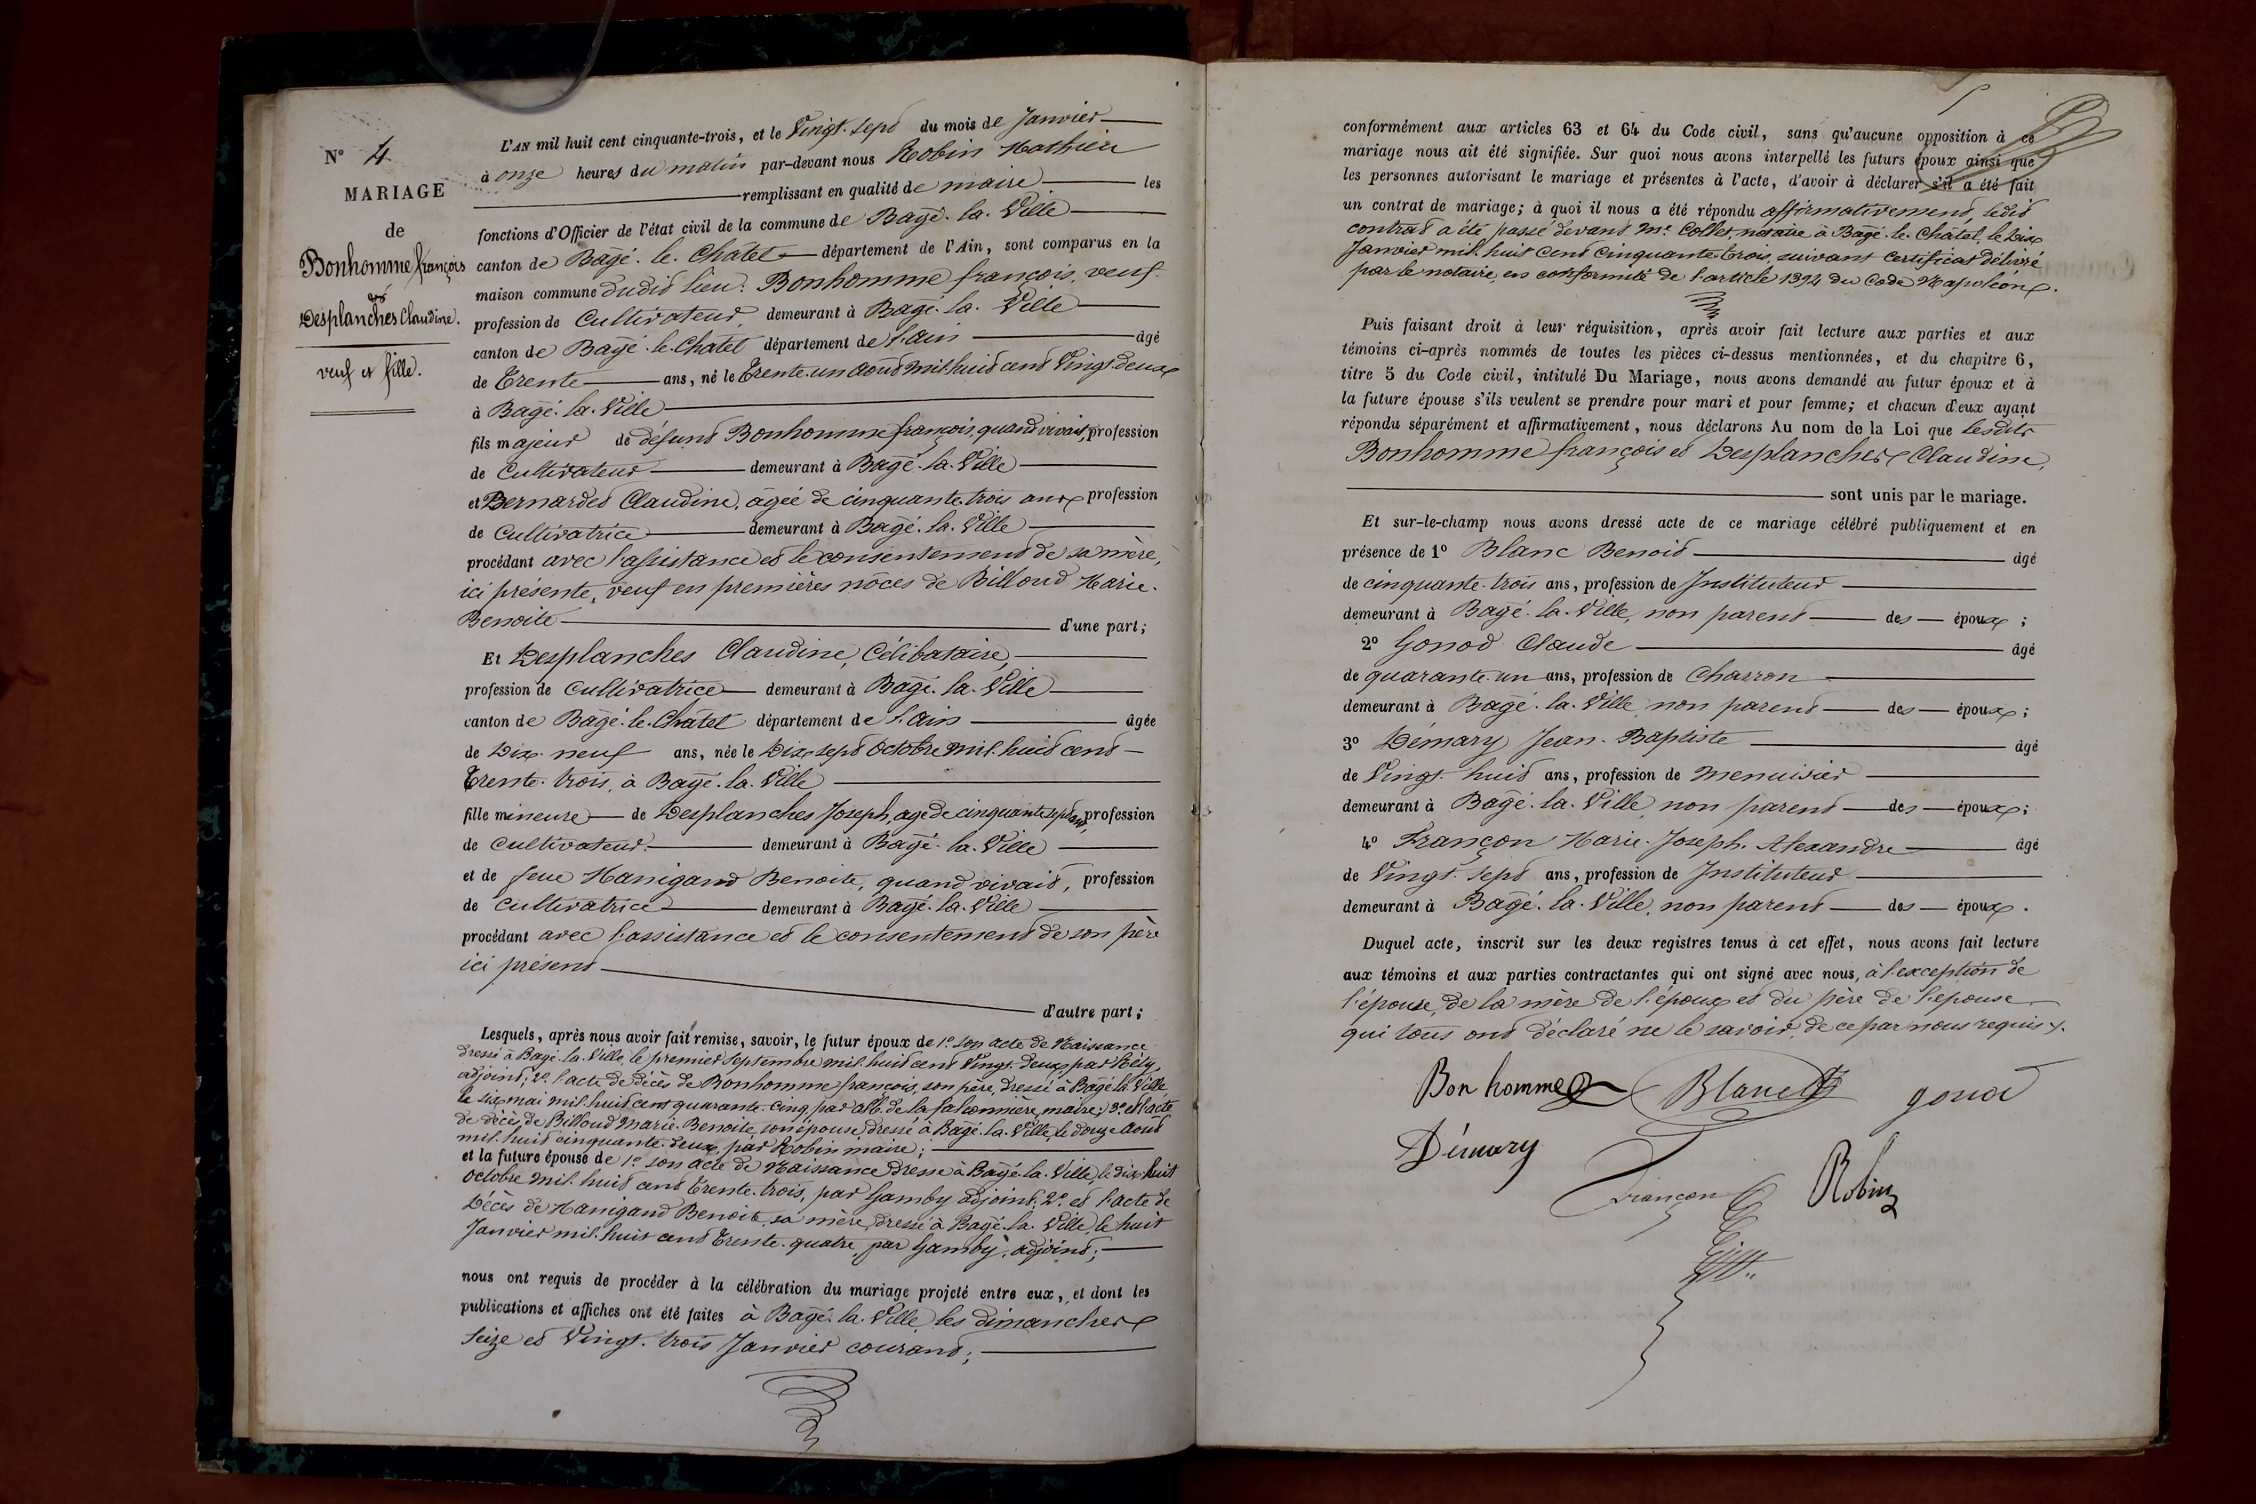 N° 4
MARIAGE
de
Bonhomme françois
et
Desplanches Claudine.
veuf et fille.
L'AN mil huit cent cinquante-trois, et le Vingt-sept du mois de Janvier
à onze heures du matin par-devant nous Robin Mathieu
remplissant en qualité de maire les
fonctions d'Officier de l'état civil de la commune de Bagé-la-Ville
canton de Bagé-le-Chatel département de l'Ain, sont comparus en la
maison commune dudit lieu: Bonhomme françois, veuf
profession de Cultivateur, demeurant à Bagé-la-Ville
canton de Bagé-le-Chatel département de l'ain âgé
de Trente ans, né le Trente-un août mil huit cent Vingt-deux
à Bagé-la-Ville
fils majeur de défunt Bonhomme françois, quand vivait, profession
de Cultivateur demeurant à Bagé-la-Ville
et Bernardet Claudine, âgée de cinquante-trois ans profession
de Cultivatrice demeurant à Bagé-la-Ville
procédant avec l'assistance et le consentement de sa mère,
ici présente, veuf en premières noces de Billoud Marie-
Benoite d'une part;
Et Desplanches Claudine, Célibataire,
profession de cultivatrice demeurant à Bagé-la-Ville
canton de Bagé-le-Châtel département de l'ain âgée
de Dix-neuf ans, née le Dix-sept Octobre mil huit cent
Trente-trois, à Bagé-la-Ville
fille mineure de Desplanches Joseph, age de cinquante sept ans, profession
de cultivateur demeurant à Bagé-la-Ville
et de feue Manigand Benoite, quand vivait, profession
de Cultivatrice demeurant à Bagé-la-Ville
procédant avec l'assistance et le consentement de son père
ici présent
d'autre part;
Lesquels, après nous avoir fait remise, savoir, le futur époux de 1° son acte de Naissance
dressé à Bagé-la-Ville le premier septembre mil huit cent Vingt-deux, par Réty,
adjoint; 2° l'acte de décès de Bonhomme françois, son père, dressé à Bagé-la-Ville
le six mai mil huit cent quarante-cinq, par de la falconnière, maire; 3° et l'acte
de décès de Billoud Marie-Benoite, son épouse, dressé à Bagé-la-Ville, le douze Août
mil huit cinquante-deux, par Robin maire;
et la future épouse de 1° son acte de Naissance dressé à Bagé-la-Ville, le dix-huit
octobre mil huit cent Trente-trois, par Gamby adjoint; 2° et l'acte de
Décès de Manigand Benoite, sa mère, dressé à Bagé-la-Ville, le huit
Janvier mil huit cent Trente-quatre par Gamby, adjoint;
nous ont requis de procéder à la célébration du mariage projeté entre eux, et dont les
publications et affiches ont été faites à Bagé-la-Ville les dimanches
seize et Vingt-trois Janvier courant;
conformément aux articles 63 et 64 du Code civil, sans qu'aucune opposition à ce
mariage nous ait été signifiée. Sur quoi nous avons interpellé les futurs époux ainsi que
les personnes autorisant le mariage et présentes à l'acte, d'avoir à déclarer s'il a été fait
un contrat de mariage; à quoi il nous a été répondu affirmativement, ledit
contrat a été passé devant Me Collet notaire à Bagé-le-Châtel, le Dix
Janvier mil huit Cent Cinquante-trois, suivant certificat délivré
par le notaire, en conformité de l'article 1394 du Code Napoléon.
Puis faisant droit à leur réquisition, après avoir fait lecture aux parties et aux
témoins ci-après nommés de toutes les pièces ci-dessus mentionnées, et du chapitre 6,
titre 5 du Code civil, intitulé Du Mariage, nous avons demandé au futur époux et à
la future épouse s'ils veulent se prendre pour mari et pour femme; et chacun d'eux ayant
répondu séparément et affirmativement, nous déclarons Au nom de la Loi que lesdits
Bonhomme françois et Desplanches Claudine,
sont unis par le mariage.
Et sur-le-champ nous avons dressé acte de ce mariage célébré publiquement et en
présence de 1° Blanc Benoit âgé
de cinquante-trois ans, profession de Instituteur
demeurant à Bagé-la-Ville, non parent des époux;
2° Gonod Claude âgé
de quarante-un ans, profession de Charron
demeurant à Bagé-la-Ville non parent des époux;
3° Démary Jean-Baptiste âgé
de Vingt-huit ans, profession de menuisier
demeurant à Bagé-la-Ville, non parent des époux;
4° Françon Marie-Joseph-Alexandre âgé
de Vingt-sept ans, profession de Instituteur
demeurant à Bagé-la-Ville, non parent des époux.
Duquel acte, inscrit sur les deux registres tenus à cet effet, nous avons fait lecture
aux témoins et aux parties contractantes qui ont signé avec nous, à l'exception de
l'épouse, de la mère de l'époux et du père de l'épouse
qui tous ont déclaré ne le savoir, de ce par nous requis.
Bon homme Blanc gonod
Démary
françon Robin